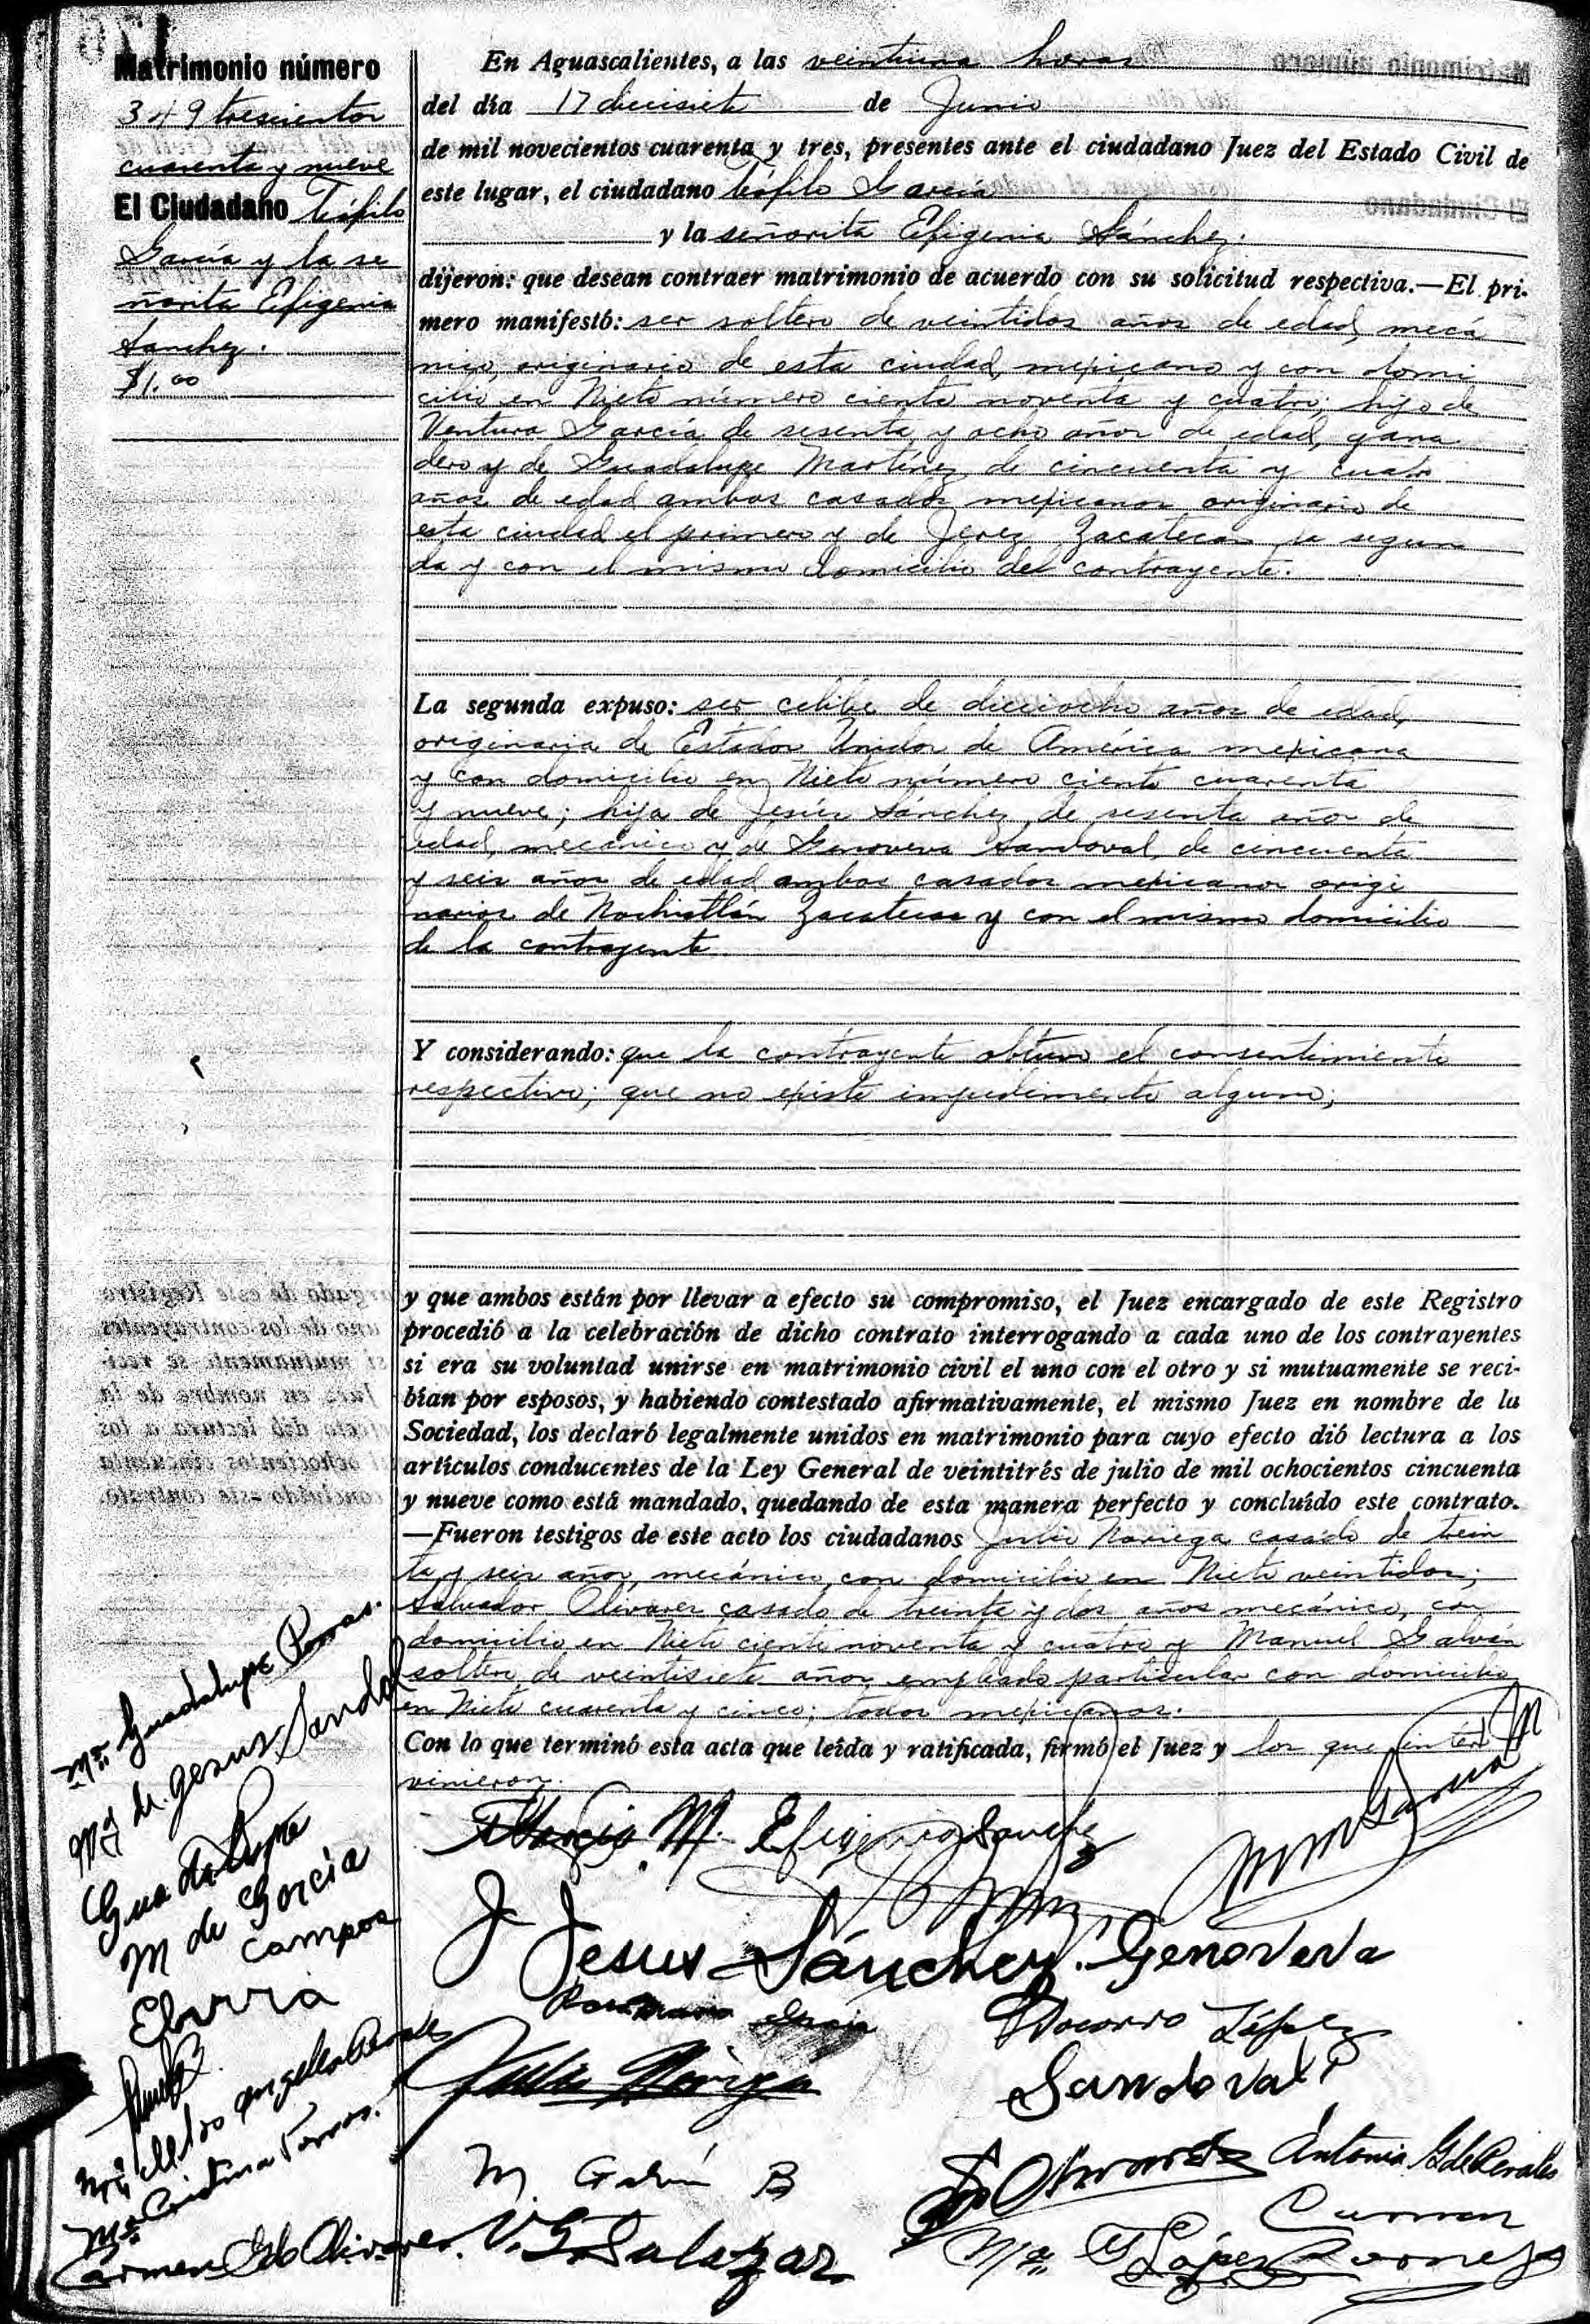 Matrimonio número
349 trescientos
cuarenta y nueve
El Ciudadano Teófilo
García y la se
ñorita Efigenia
Sanchez.
$1.00
En Aguascalientes, a las veintiuna horas
del día 17 diecisiete de Junio
de mil novecientos cuarenta y tres, presentes ante el ciudadano Juez del Estado Civil de
este lugar, el ciudadano Teófilo García
y la señorita Efigenia Sánchez.
dijeron: que desean contraer matrimonio de acuerdo con su solicitud respectiva.—El pri-
mero manifestó: ser soltero de veintidos años de edad, mecá
nico, originario de esta ciudad, mexicano y con domi
cilio en Nieto número ciento noventa y cuatro; hijo de
Ventura García de sesenta y ocho años de edad, gana
dero y de Guadalupe Martínez de cincuenta y cuatro
años de edad ambos casados mexicanos originario de
esta ciudad el primero y de Jerez Zacatecas la segun
da y con el mismo domicilio del contrayente.
La segunda expuso: ser célibe de dieciocho años de edad,
originaria de Estados Unidos de América mexicana
y con domicilio en Nieto número ciento cuarenta
y nueve; hija de Jesús Sánchez, de sesenta años de
edad, mecánico y de Genoveva Sandoval, de cincuenta
y seis años de edad ambos casados mexicanos origi
narios de Nochistlán Zacatecas y con el mismo domicilio
de la contrayente.
Y considerando: que la contrayente obtuvo el consentimiento
respectivo; que no existe impedimento alguno;
y que ambos están por llevar a efecto su compromiso, el Juez encargado de este Registro
procedió a la celebración de dicho contrato interrogando a cada uno de los contrayentes
si era su voluntad unirse en matrimonio civil el uno con el otro y si mutuamente se reci-
bían por esposos, y habiendo contestado afirmativamente, el mismo Juez en nombre de la
Sociedad, los declaró legalmente unidos en matrimonio para cuyo efecto dió lectura a los
artículos conducentes de la Ley General de veintitrés de julio de mil ochocientos cincuenta
y nueve como está mandado, quedando de esta manera perfecto y concluído este contrato.
—Fueron testigos de este acto los ciudadanos Julio Noriega casado de trein
ta y seis años, mecánico, con domicilio en Nieto veintidos;
Salvador Olivares casado de treinta y dos años mecánico, con
domicilio en Nieto ciento noventa y cuatro y Manuel Galván
soltero de veintisiete años empleado particular con domicilio
en Nieto cuarenta y cinco; todos mexicanos.
Con lo que terminó esta acta que leída y ratificada, firmó el Juez y los que inter
vinieron.
García M. Efigenia Sanchez
J Jesus Sánchez. Genoveva
Socorro López
Julio Noriega
Sandoval
M. Galván B
Olivares Antonia G de Perales
Carmen
V. G. Salazar
Ma G López
Ma Guadalupe Porras.
Ma de Jesus Sandoval
Guadalupe
M de García
Campos
Ma de los Angeles
Ma Cristina Porras.
Carmen G de Olivares.